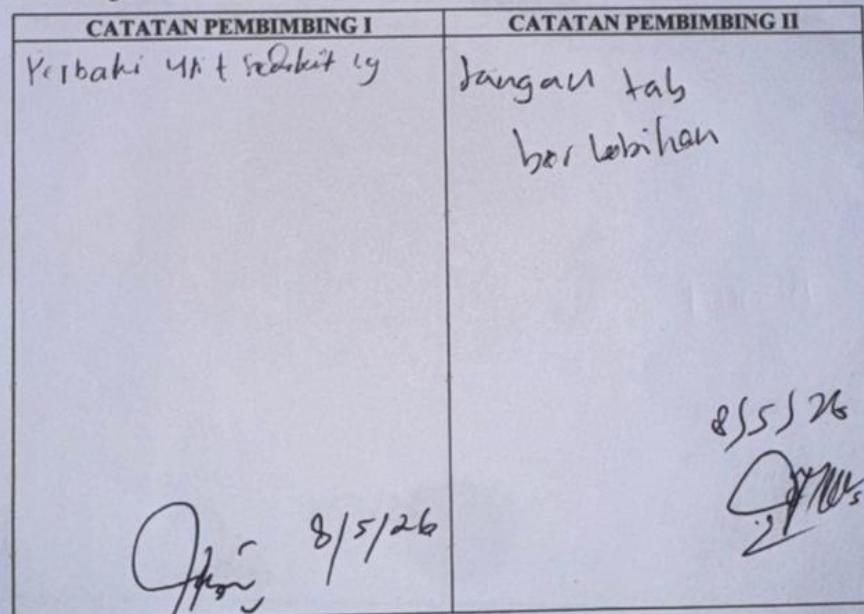 CATATAN PEMBIMBING I
CATATAN PEMBIMBING II
sedikit lg
Jangan tab
berlebihan
8/5/26
8/5/26